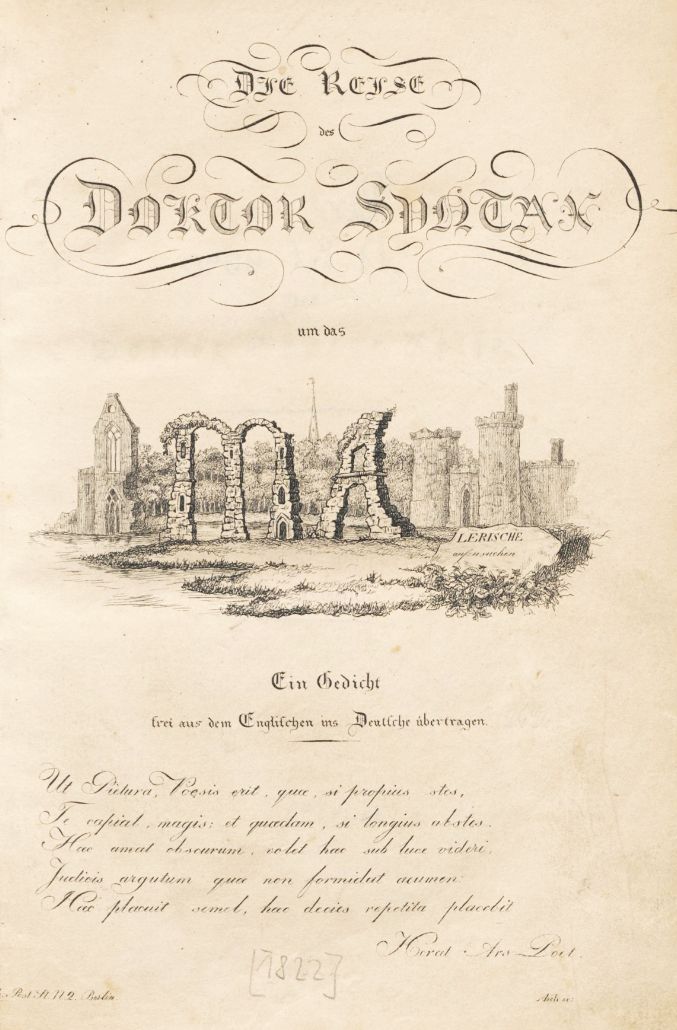 DIE REISE
des
DOKTOR SYNTAX
um das
MALERISCHE
aufzusuchen
Ein Gedicht
frei aus dem Englischen ins Deutsche übertragen.
Ut Pictura, Poesis erit, quæ, si propius stes,
Te capiat, magis; et quædam, si longius abstes.
Hæc amat obscurum, volet hæc sub luce videri,
Judicis argutum quæ non formidat acumen:
Hæc placuit semel, hæc decies repetita placebit
Horat Ars Poet.
[1822]
Post St. N 2. Berlin